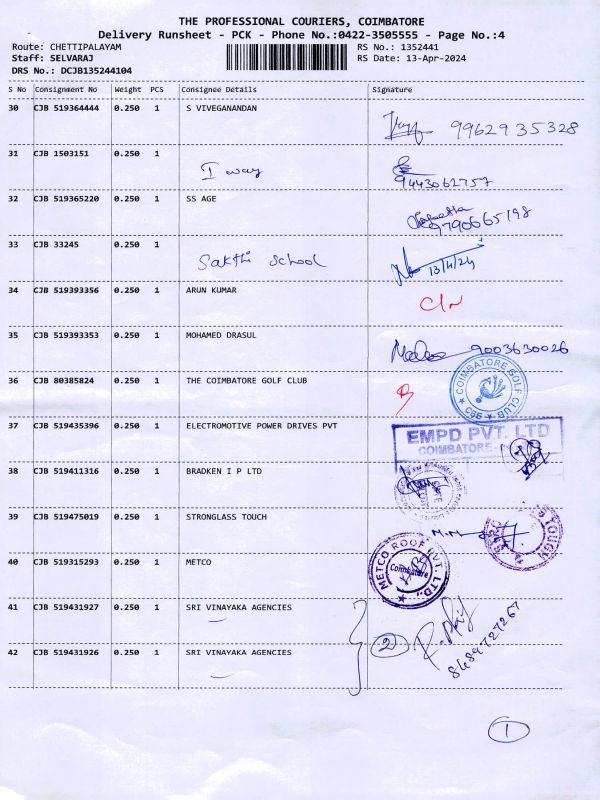 THE PROFESSIONAL COURIERS, COIMBATORE
Delivery Runsheet - PCK - Phone No.:0422-3505555 - Page No.:4
Route: CHETTIPALAYAM RS No.: 1352441
Staff: SELVARAJ RS Date: 13-Apr-2024
DRS No.: DCJB135244104
S No Consignment No Weight PCS Consignee Details Signature
30 CJB 519364444 0.250 1 S VIVEGANANDAN 9962935328
31 CJB 1503151 0.250 1 I way 9443062757
32 CJB 519365220 0.250 1 SS AGE 9790665198
33 CJB 33245 0.250 1 Sakthi School 13/4/24
34 CJB 519393356 0.250 1 ARUN KUMAR
35 CJB 519393353 0.250 1 MOHAMED DRASUL 9003630026
36 CJB 80385824 0.250 1 THE COIMBATORE GOLF CLUB COIMBATORE GOLF CLUB CBE
37 CJB 519435396 0.250 1 ELECTROMOTIVE POWER DRIVES PVT EMPD PVT. LTD
COIMBATORE
38 CJB 519411316 0.250 1 BRADKEN I P LTD
39 CJB 519475019 0.250 1 STRONGLASS TOUCH TOUGH
40 CJB 519315293 0.250 1 METCO METCO ROOF PVT. LTD. Coimbatore
41 CJB 519431927 0.250 1 SRI VINAYAKA AGENCIES
2
42 CJB 519431926 0.250 1 SRI VINAYAKA AGENCIES
1